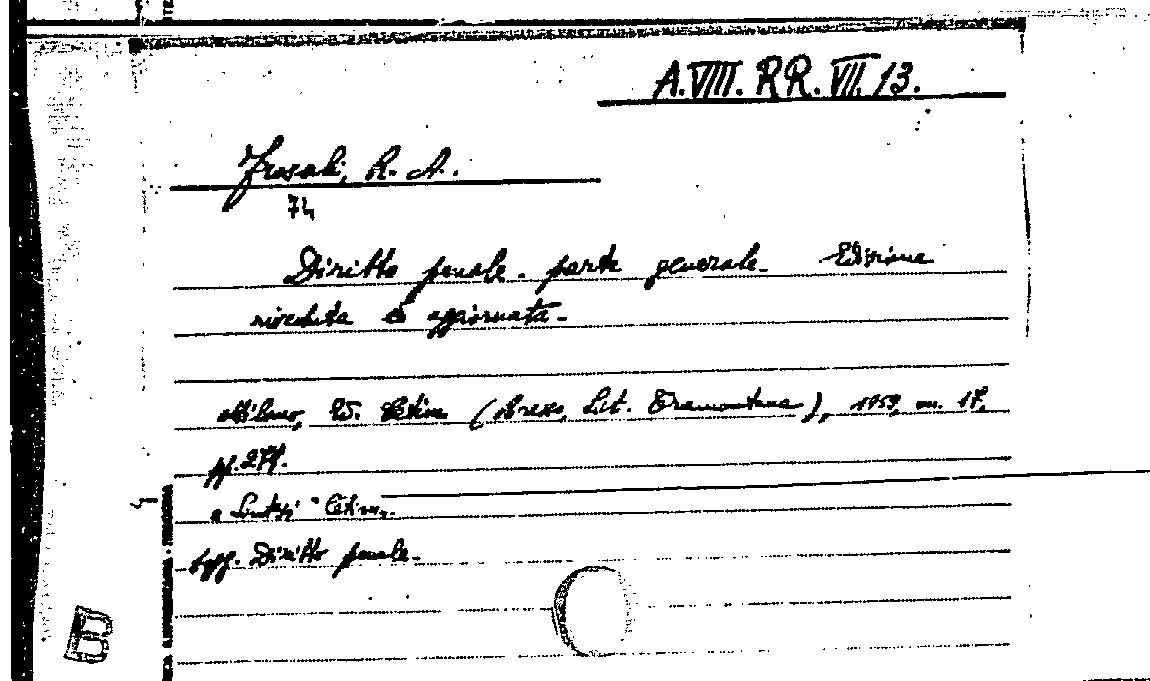 A.VIII. RR. VII. 13.
Frosali, R. A.
74
Diritto penale. parte generale. Edizione
riveduta e aggiornata.
Milano, Ed. Cetim (Bresso, Lit. Tramontana), 1959, in. 17,
pp. 277.
Cetim.
Diritto penale.
B